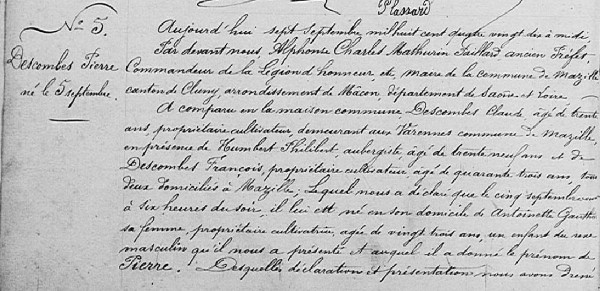 Plassard
N° 5.
Descombes Pierre
né le 5 septembre.
Aujourd hui sept Septembre mil huit cent quatre vingt dix à midi
Par devant nous, Alphonse Charles Mathurin Juillard ancien Préfet
Commandeur de la Légion d honneur, etc, maire de la commune de Mazille
canton de Cluny, arrondissement de Mâcon, département de Saône et Loire
A comparu en la maison commune, Descombes Claude, âgé de trente
ans, propriétaire cultivateur, demeurant aux Varennes commune de Mazille,
en présence de Humbert Philibert, aubergiste âgé de trente neuf ans et de
Descombes François, propriétaire cultivateur, âgé de quarante trois ans, tous
deux domiciliés à Mazille; Lequel nous a déclaré que le cinq septembre
à six heures du soir, il lui est né en son domicile de Antoinette
sa femme, propriétaire cultivatrice, âgée de vingt trois ans, un enfant du sexe
masculin qu'il nous a présenté et auquel il a donné le prénom de
Pierre. Desquelles déclaration et présentation nous avons dressé